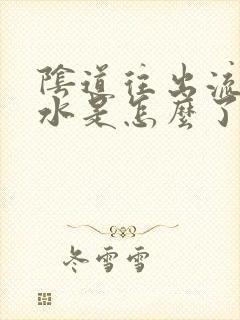 陰道往出流
水是怎麼了
冬雪雪